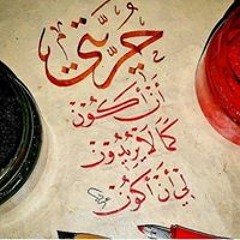 حُرِّيَّتي
أَنْ أَكُوْنَ
كَمَا لَا يُرِيْدُوْنَ
لِي أَنْ أَكُوْنَ